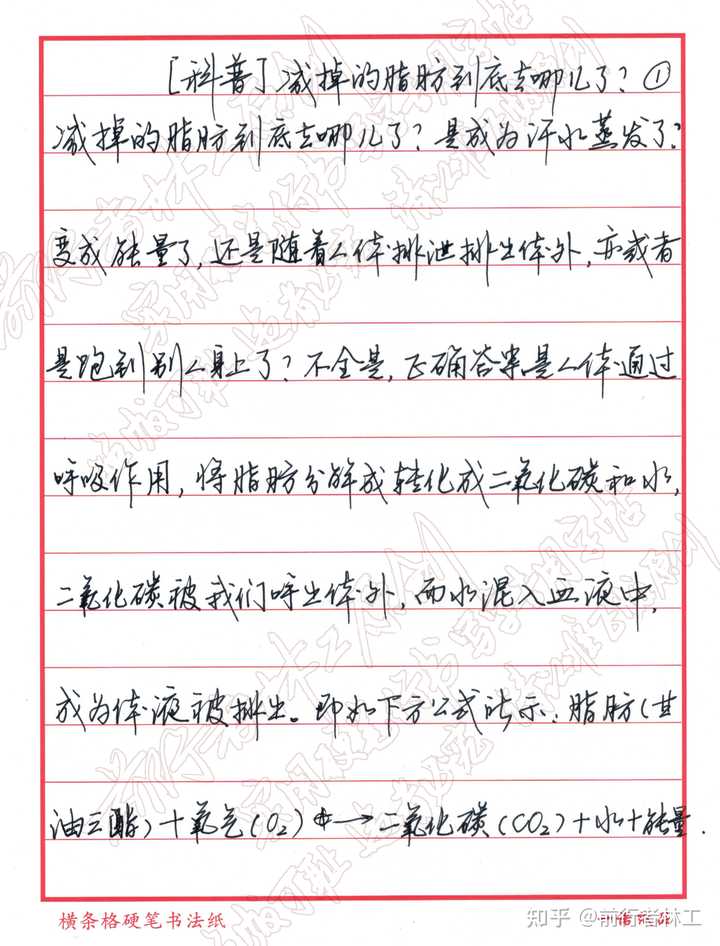 [科普]减掉的脂肪到底去哪儿了？①
减掉的脂肪到底去哪儿了？是成为汗水蒸发了？
变成能量了，还是随着人体排泄排出体外，亦或者
是跑到别人身上了？不全是，正确答案是人体通过
呼吸作用，将脂肪分解成转化成二氧化碳和水，
二氧化碳被我们呼出体外，而水混入血液中，
成为体液被排出。即如下方公式所示：脂肪（甘
油三酯）+氧气（O₂）→二氧化碳（CO₂）+水+能量．
横条格硬笔书法纸
知乎 @前行者林工